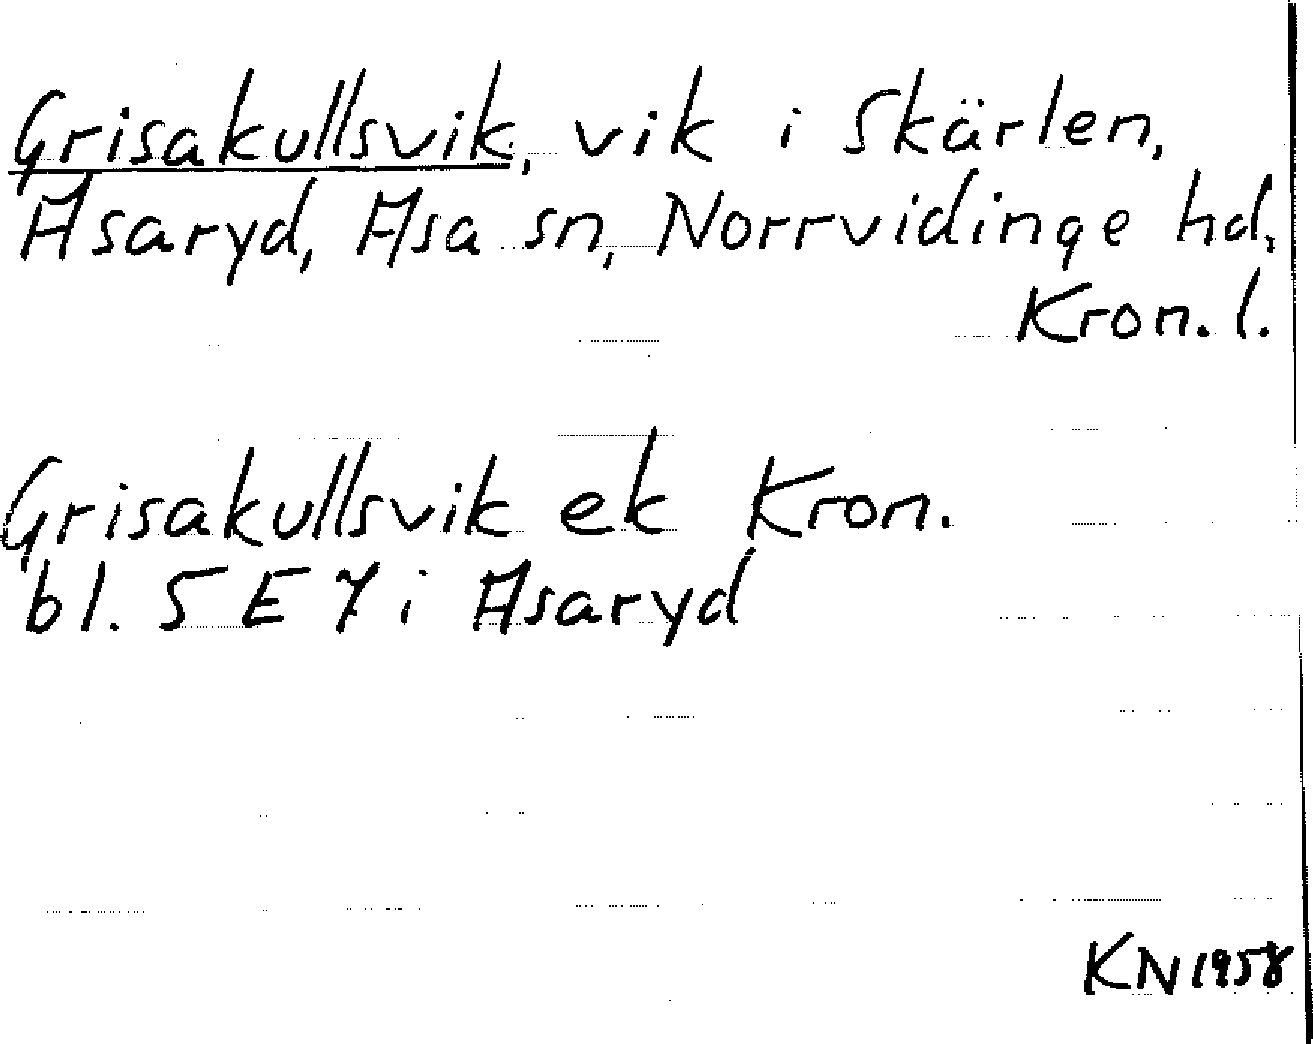 Grisakullsvik, vik i Skärlen,
Asaryd, Asa sn, Norrvidinge hd,
Kron. l.
Grisakullsvik ek Kron.
bl. 5 E 7 i Asaryd
KN 1958